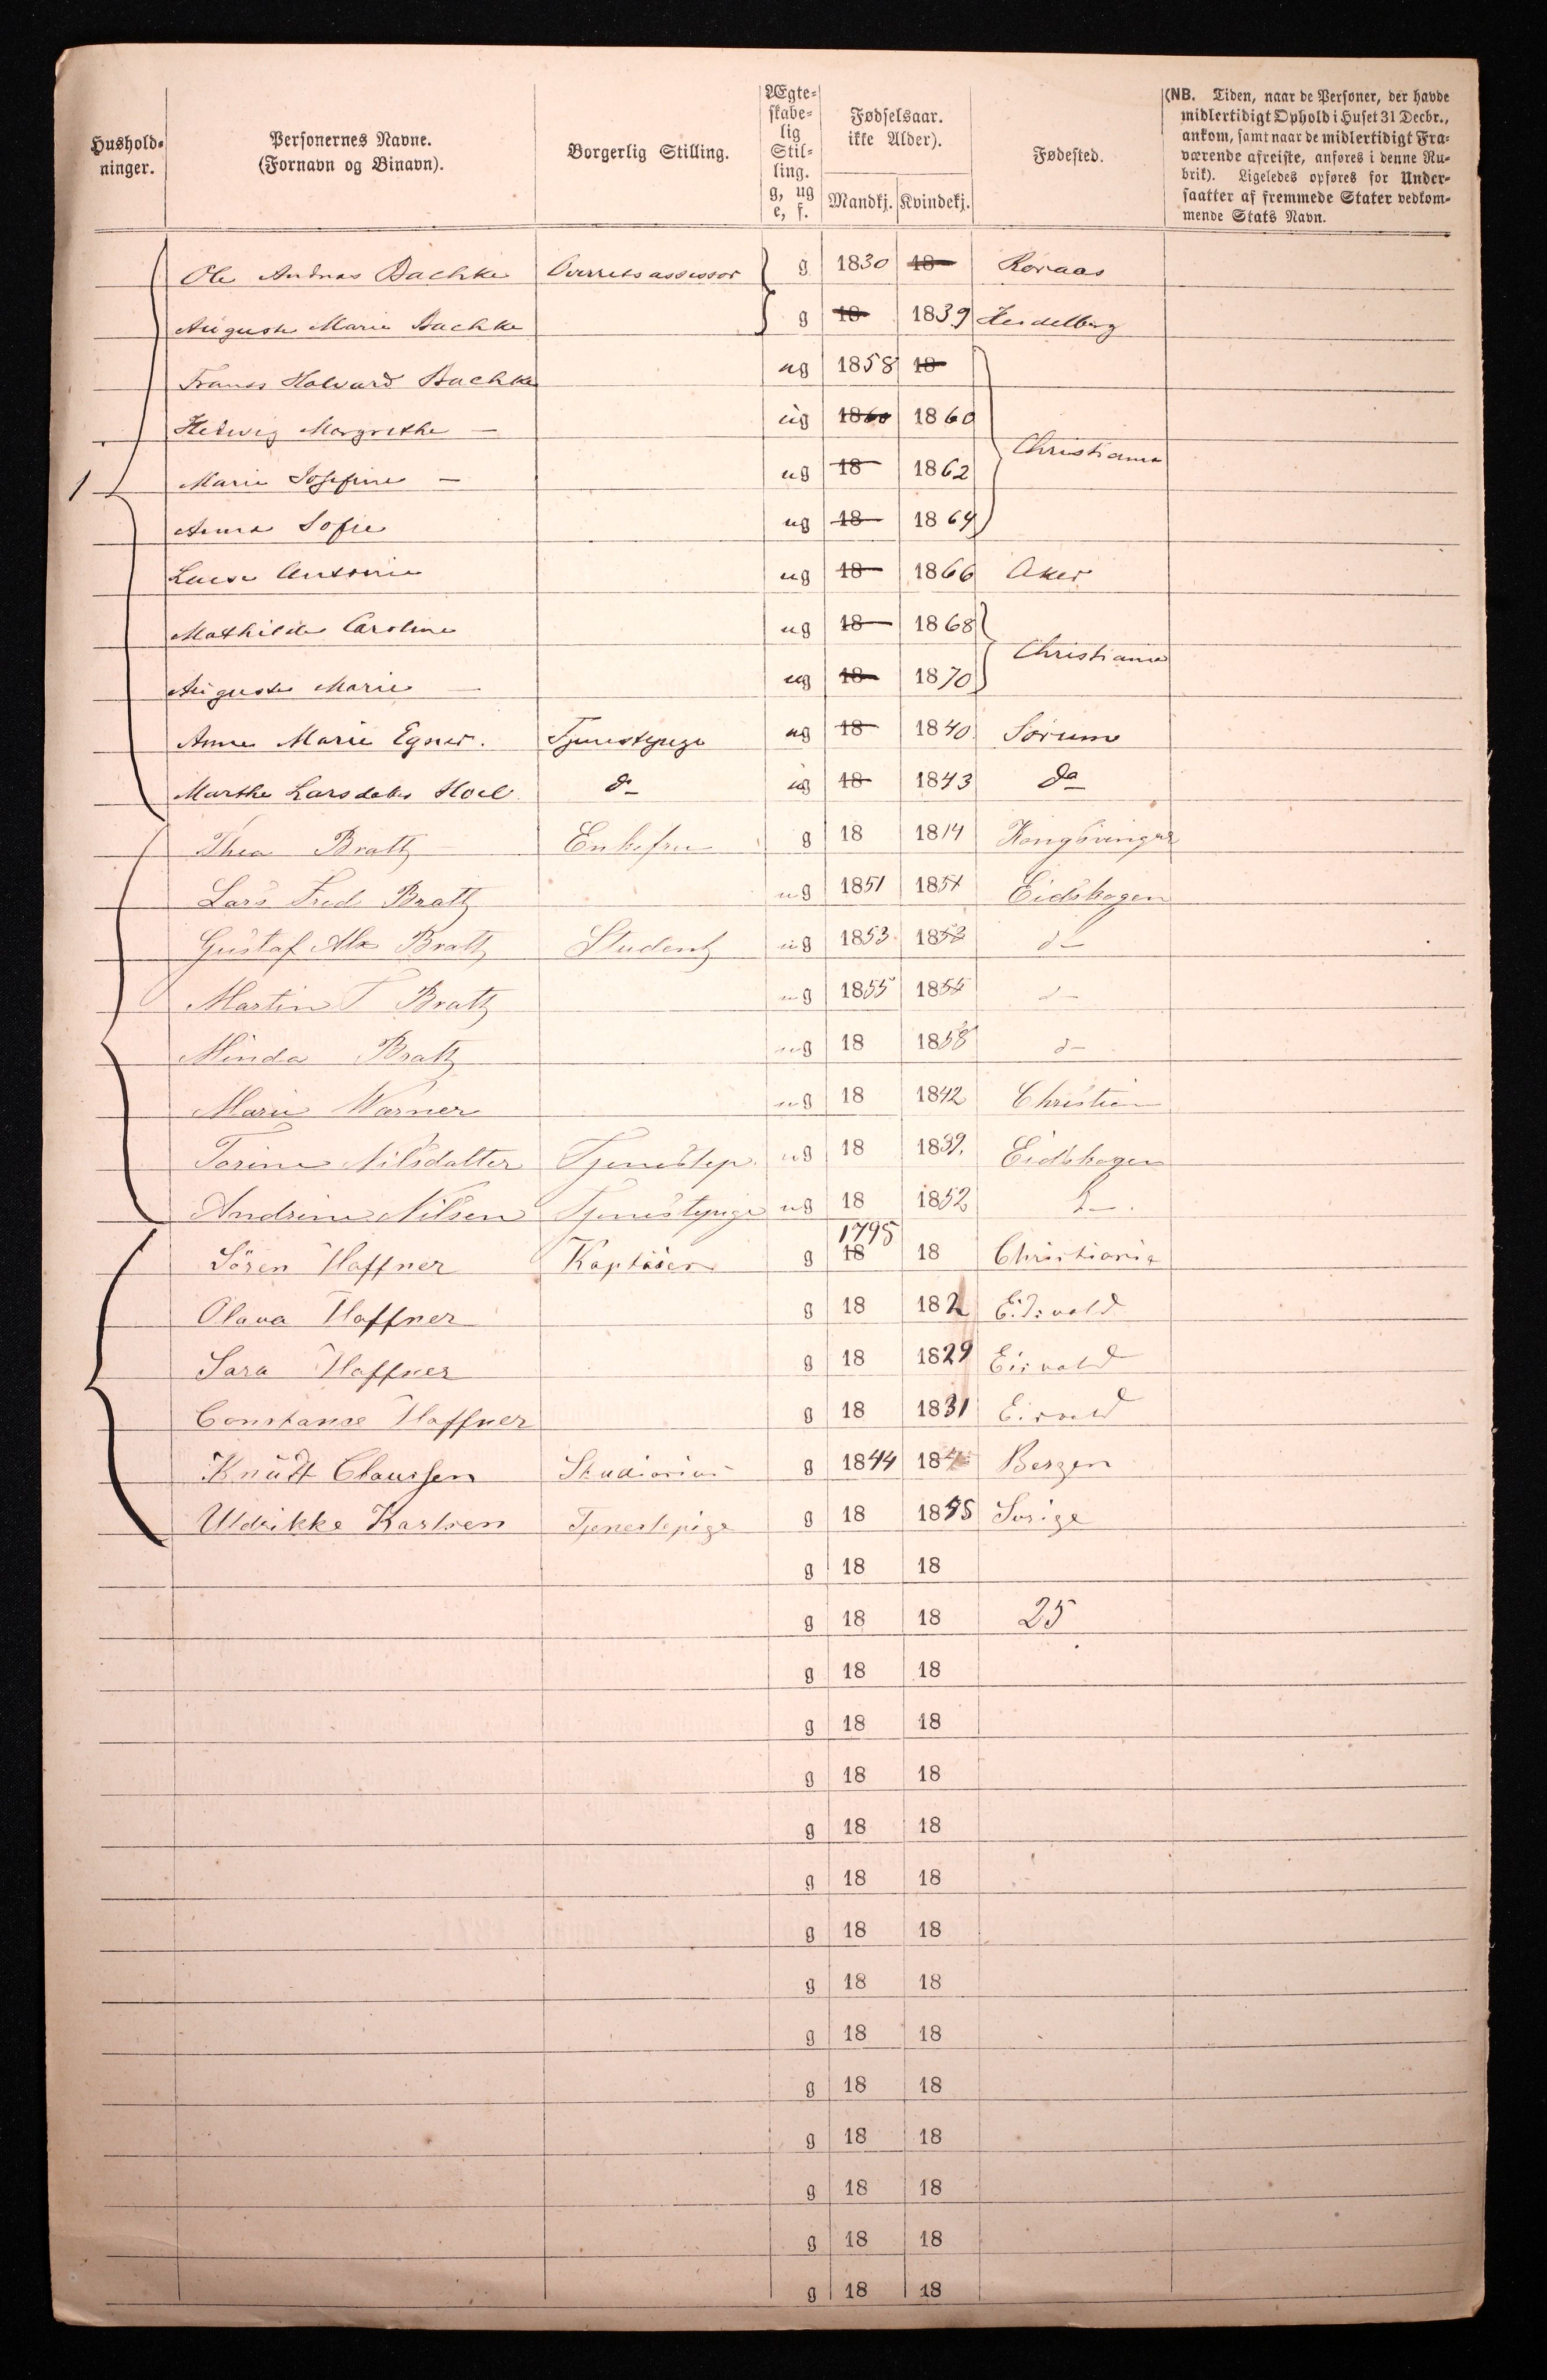 Hushold-
ninger.
Personernes Navne.
(Fornavn og Binavn).
Borgerlig Stilling.
Ægte-
skabe-
lig
Stil-
ling.
g, ug
e, f.
Fødselsaar.
ikke Alder).
Mandkj. Kvindekj.
Fødested.
(NB. Tiden, naar de Personer, der havde
midlertidigt Ophold i Huset 31 Decbr.,
ankom, samt naar de midlertidigt Fra-
værende afreiste, anføres i denne Ru-
brik). Ligeledes opføres for Under-
saatter af fremmede Stater vedkom-
mende Stats Navn.
Ole Andreas Bachke Overretsassessor g 1830 18 Røraas
Auguste Marie Bachke g 18 1839 Heidelberg
Frants Halvard Bachke ug 1858 18
Hedwig Margrethe — ug 1860 1860
Christiania
1 Marie Josefine — ug 18 1862
Anna Sofie ug 18 1864
Louise Antonie ug 18 1866 Aker
Mathilde Caroline ug 18 1868
Christiania
Auguste Marie — ug 18 1870
Anne Marie Egner. Tjenestepige ug 18 1840 Sørum
Marthe Larsdatter Hoel do ug 18 1843 do
Thea Bratt Enkefru g 18 1814 Kongsvinger
Lars Fred Bratt ug 1851 1851 Eidskogen
Gustaf Alx Bratt Student ug 1853 1853 d—
Martin T Bratt ug 1855 1855 d—
Minda Bratt ug 18 1858 d—
Marie Warner ug 18 1842 Christian
Torine Nilsdatter Tjenestep. ug 18 1839. Eidskogen
Andrine Nilsen Tjenestepige ug 18 1852 d—.
1795
Sören Haffner Kaptäien g 18 18 Christiania
Olava Haffner g 18 182 Eidsvold
Sara Haffner g 18 1829 Eisvold
Constance Haffner g 18 1831 Eisvold
Knüdt Claussen Studiosius g 1844 184 Bergen
Uldrikke Karlsen Tjenestepige g 18 1855 Sverige
g 18 18
g 18 18 25
g 18 18
g 18 18
g 18 18
g 18 18
g 18 18
g 18 18
g 18 18
g 18 18
g 18 18
g 18 18
g 18 18
g 18 18
g 18 18